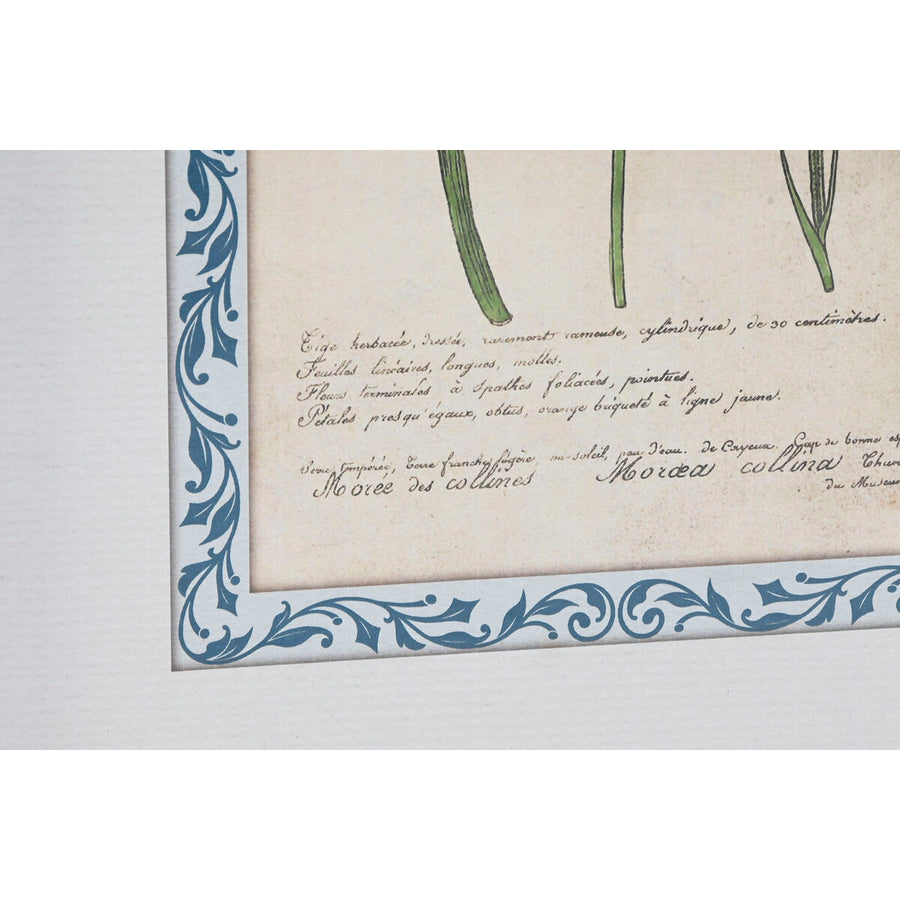 Tige herbacée, dressée, rarement rameuse, cylindrique, de 30 centimètres.
Feuilles linéaires, longues, molles.
Fleurs terminales à spathes foliacées, pointues.
Pétales presqu'égaux, obtus, orange briqueté à ligne jaune.
tempérée, Terre franche, légère, mi-soleil, peu d'eau. de Cayeux. Cap de bonne esp
Morée des collines Moræa collina Thun
du Museum